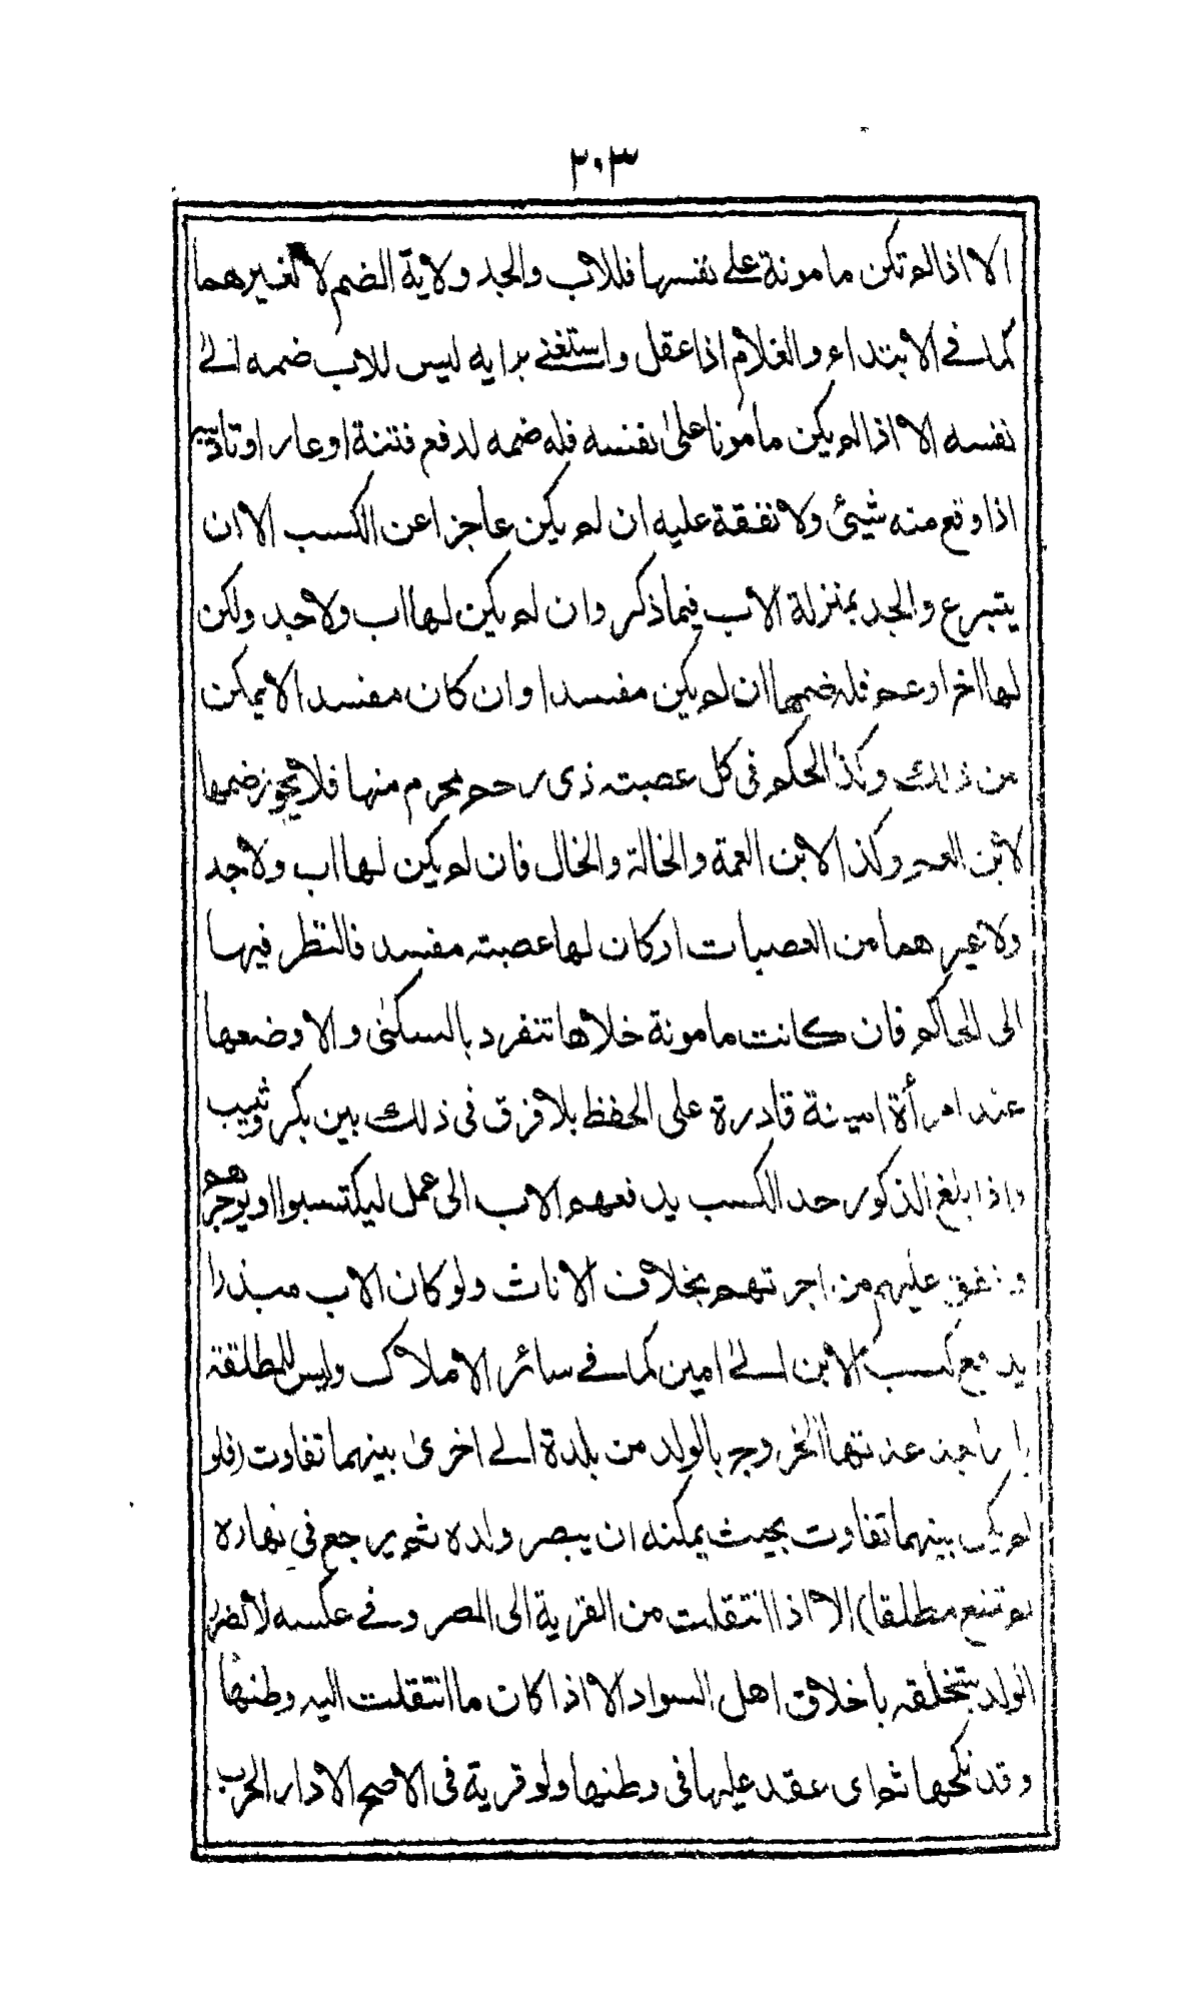 ٢٠٣
الا اذا لم تكن مامونة على نفسها فللاب والجد ولاية الضم لا لغيرهما
كما في الابتداء والغلام اذا عقل واستغنى برايه ليس للاب ضمه الى
نفسه الا اذا لم يكن مامونا على نفسه فله ضمه لدفع فتنة او عار او تاديبه
اذا وقع منه شيئ ولا نفقة عليه ان لم يكن عاجزا عن الكسب الا ان
يتبرع والجد بمنزلة الاب فيما ذكر وان لم يكن لها اب ولا جد ولكن
لها اخ او عم فله ضمها ان لم يكن مفسدا وان كان مفسدا لا يمكن
من ذلك وكذا الحكم في كل عصبته ذى رحم محرم منها فلا يجوز ضمها
لابن العم وكذا لابن العمة والخالة والخال فان لم يكن لها اب ولا جد
ولا غيرهما من العصبات او كان لها عصبته مفسد فالنظر فيها
الى الحاكم فان كانت مامونة خلاها تنفرد بالسكنى والا وضعها
عند امرأة امينة قادرة على الحفظ بلا فرق في ذلك بين بكر وثيب
واذا بلغ الذكور حد الكسب يدفعهم الاب الى عمل ليكتسبوا او يوجرهم
وينفق عليهم من اجرتهم بخلاف الاناث ولو كان الاب مبذرا
يدفع كسب الابن الى امين كما في سائر الاملاك وليس للمطلقة
عدتها الخروج بالولد من بلدة الى اخرى بينهما تفاوت (فلو
لم يكن بينهما تفاوت بحيث يمكنه ان يبصر ولده ثم يرجع في نهاره
لم تمنع مطلقا) الا اذا انتقلت من القرية الى المصر وفي عكسه لا لضرر
الولد بتخلقه باخلاق اهل السواد الا اذا كان ما انتقلت اليه وطنها
وقد نكحها ثم اى عقد عليها في وطنها ولو قرية في الاصح الا دار الحرب